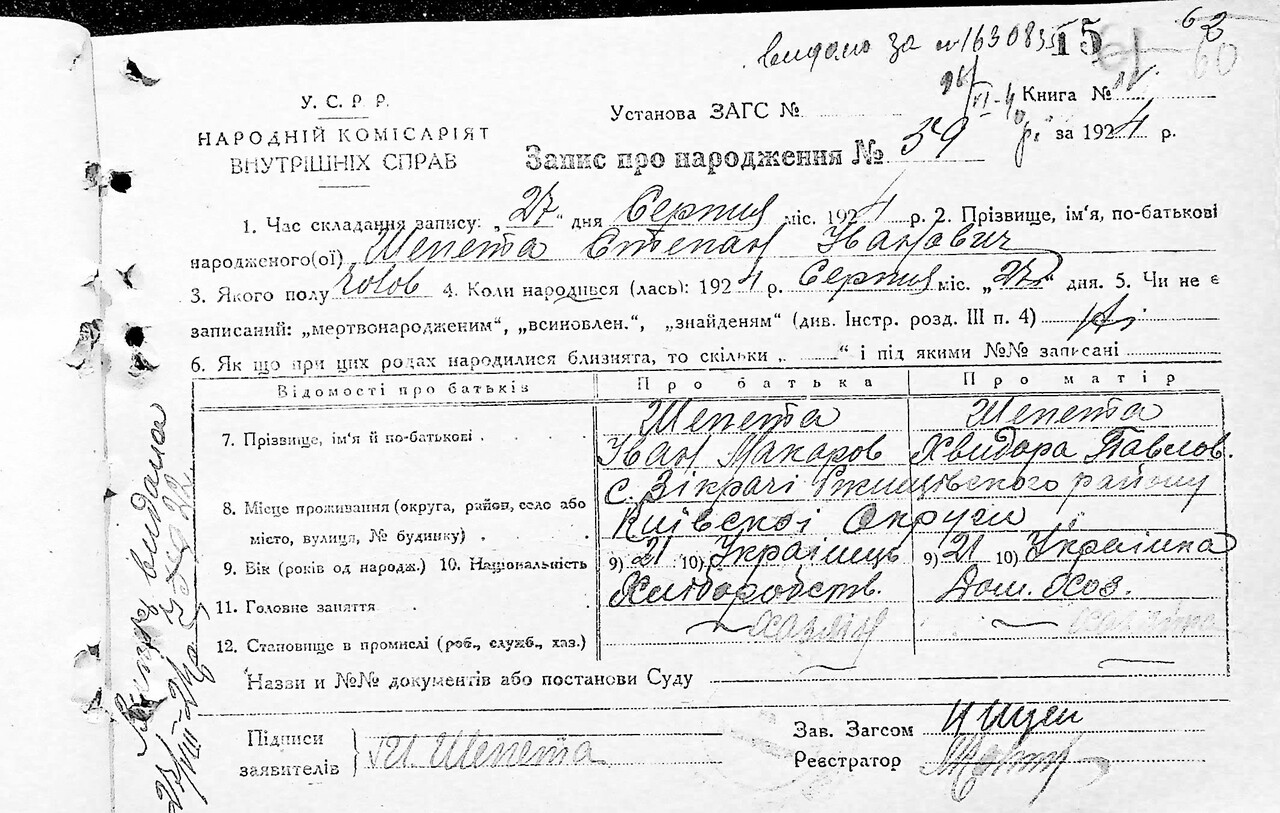 видано за № 163085 15 61 62
60
У. С. Р. Р.
НАРОДНІЙ КОМІСАРІЯТ
ВНУТРІШНІХ СПРАВ
Установа ЗАГС №
Книга №
за 1924 р.
Запис про народження № 59
1. Час складання запису: „27“ дня Серпня міс. 1924 р. 2. Прізвище, ім'я, по-батькові
народженого(ої) Шепета Степан Іванович
3. Якого полу чолов 4. Коли народився (лась): 1924 р. Серпня міс. „27“ дня. 5. Чи не є
записаний: „мертвонародженим“, „всиновлен.“, „знайденям“ (див. Інстр. розд. III п. 4) Ні
6. Як що при цих родах народилися близнята, то скільки „ “ і під якими №№ записані
Відомості про батьків Про батька Про матір
7. Прізвище, ім'я й по-батькові Шепета Іван Макаров Шепета Хвидора Павлов.
8. Місце проживання (округа, район, село або
місто, вулиця, № будинку) с. Зікрачі Ржищівского району
Київскої Округи
9. Вік (років од народж.) 10. Національність 9) 21 10) Українець 9) 21 10) Українка
11. Головне заняття Хліборобств. Дом. Хоз.
12. Становище в промислі (роб., служб., хаз.) хазяін
Назви и №№ документів або постанови Суду
Підписи
заявителів И. Шепета
Зав. Загсом
Реєстратор
видана